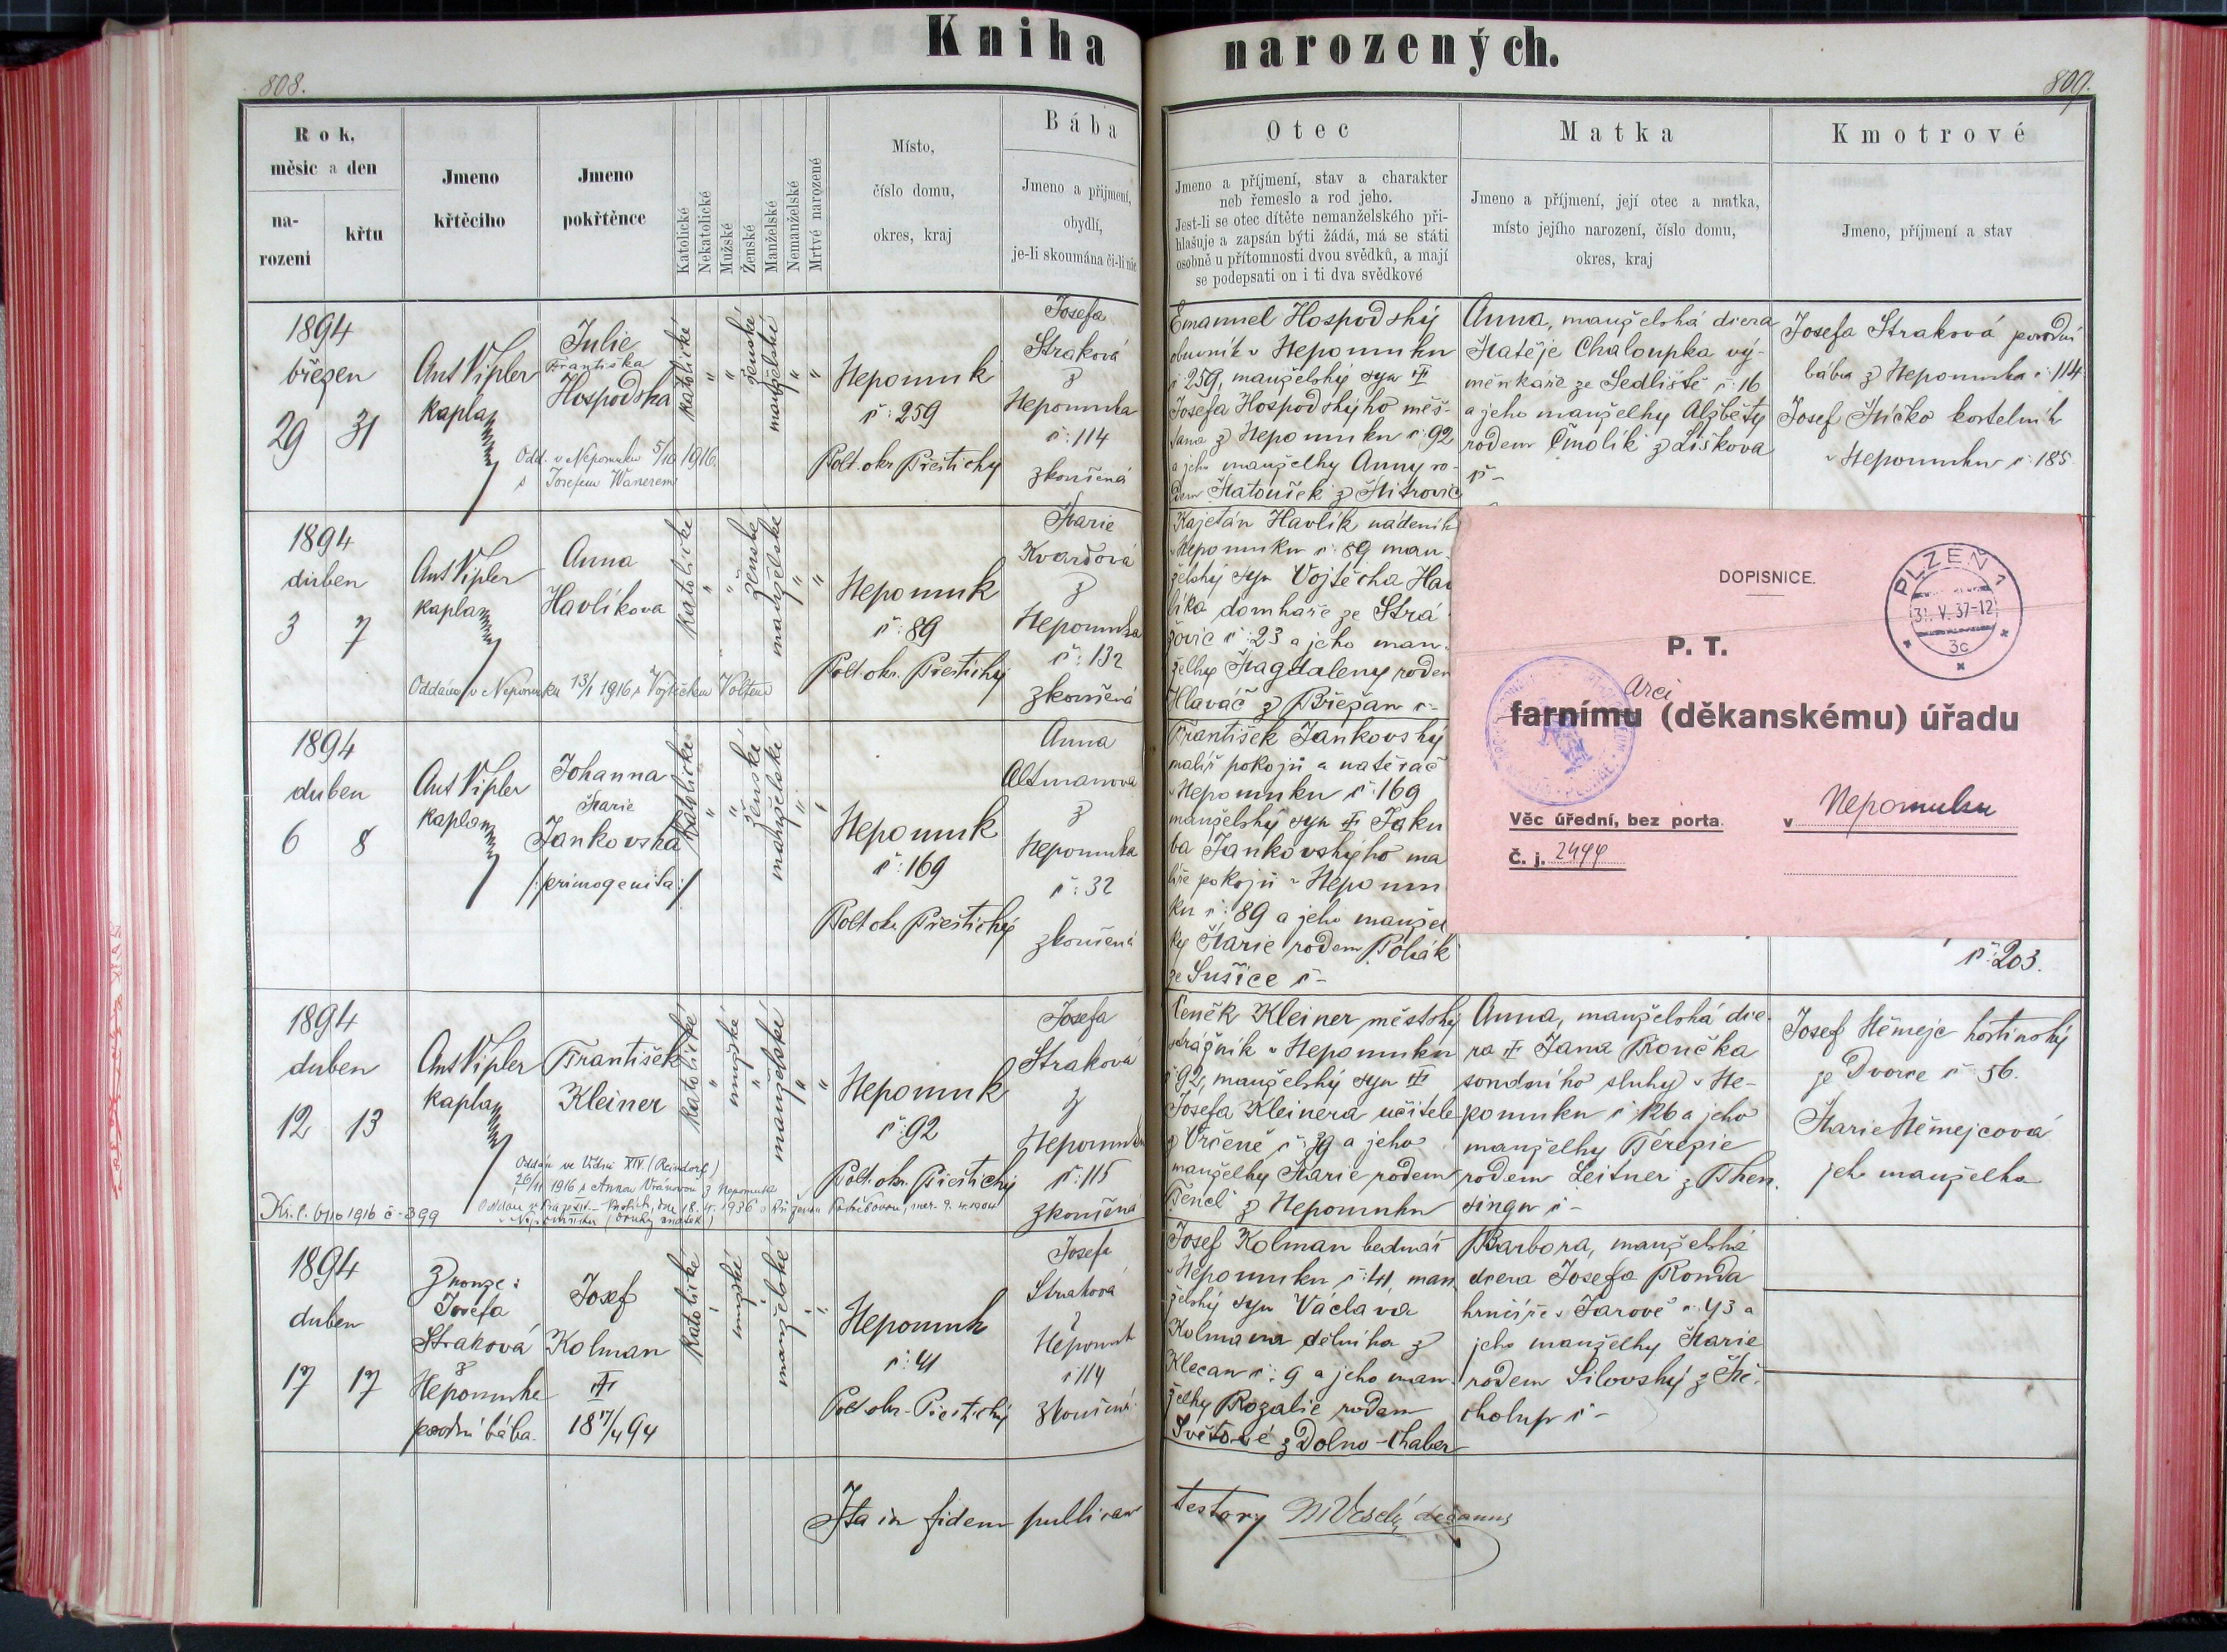 Kniha narozených.
808.
809.
Rok,
měsíc a den
na-
rození
křtu
Jmeno
křtěcího
Jmeno
pokřtěnce
Katolické
Nekatolické
Mužské
Ženské
Manželské
Nemanželské
Mrtvé narozené
Místo,
číslo domu,
okres, kraj
Bába
Jmeno a přijmení,
obydlí,
je-li skoumána či-li nic
Otec
Jmeno a příjmení, stav a charakter
neb řemeslo a rod jeho.
Jest-li se otec dítěte nemanželského při-
hlašuje a zapsán býti žádá, má se státi
osobně u přítomnosti dvou svědků, a mají
se podepsati on i ti dva svědkové
Matka
Jmeno a příjmení, její otec a matka,
místo jejího narození, číslo domu,
okres, kraj
Kmotrové
Jmeno, příjmení a stav
1894
březen
29 31
Ant Vipler
kaplan
Julie
Františka
Hospodská
Odd. v Nepomuku 5/10 1916
s Josefem Wanerem
katolické
ženské
manželské
Nepomuk
č: 259
Polt. okr. Přeštický
Josefa
Straková
z
Nepomuka
č: 114
zkoušená
Emanuel Hospodský
obuvník v Nepomuku
č 259, manželský syn
Josefa Hospodského měš-
ťana z Nepomuku č: 92
a jeho manželky Anny ro-
dem Matoušek z Mitrovic
Anna, manželská dcera
Matěje Chaloupka vý-
měnkáře ze Sedliště č: 16
a jeho manželky Alžběty
rodem Čmolík z Liškova
č -
Josefa Straková porodní
bába z Nepomuka č: 114
Josef Mičko kostelník
v Nepomuku č: 185
1894
duben
3 7
Ant Vipler
kaplan
Anna
Havlíkova
Oddána v Nepomuku 13/1 1916 s Vojtěchem
katolické
ženské
manželské
Nepomuk
č: 89
Polt. okr. Přeštický
Marie
Kvardová
z
Nepomuka
č: 132
zkoušená
Kajetán Havlík nádeník
v Nepomuku č: 89 man-
želský syn Vojtěcha Hav
líka domkáře ze Strá
žovic č: 23 a jeho man-
želky Magdaleny rodem
Hlaváč z Břežan č -
DOPISNICE.
PLZEŇ 1
31. V. 37-12
3c
P. T.
Arci
farnímu (děkanskému) úřadu
Věc úřední, bez porta.
v Nepomuku
Č. j. 2444
1894
duben
6 8
Ant Vipler
kaplan
Johanna
Marie
Jankovská
/:primogenita:/
katolické
ženské
manželské
Nepomuk
č: 169
Polt okr. Přeštický
Anna
Altmanova
z
Nepomuka
č: 32
zkoušená
František Jankovský
malíř pokojů a natěrač
v Nepomuku č: 169
manželský syn Jaku
ba Jankovského ma
líře pokojů v Nepomu
ku č: 89 a jeho manžel
ky Marie rodem Polák
ze Sušice č -
č: 203.
1894
duben
12 13
Ant Vipler
kaplan
František
Kleiner
Oddán ve Vídni XIV. (Reindorf)
26/11 1916 s Annou Vránovou z Nepomuka
č. 399
katolické
mužské
manželské
Nepomuk
č: 92
Polt. okr. Přeštický
Josefa
Straková
z
Nepomuku
č: 115
zkoušená
Čeněk Kleiner městský
strážník v Nepomuku
č 92, manželský syn
Josefa Kleinera učitele
z Vrčeně č: 39 a jeho
manželky Marie rodem
Fencl z Nepomuku
Anna, manželská dce-
ra Jana Roučka
soudního sluhy v Ne-
pomuku č 126 a jeho
manželky Terezie
rodem Leitner z Then.
singu č -
Josef Němejc hostinský
ze Dvorce č: 56.
Marie Němejcová
jeho manželka
1894
duben
17 17
Z nouze:
Josefa
Straková
z
Nepomuka
porodní bába.
Josef
Kolman
18 17/4 94
katolické
mužské
manželské
Nepomuk
č: 41
Polt okr. Přeštický
Josefa
Straková
z
Nepomuk
č 114
zkoušená
Josef Kolman bednář
v Nepomuku č: 41 man
želský syn Václava
Kolmana dělníka z
Klecan č: 9 a jeho man-
želky Rozalie rodem
z Dolno-Chaber
Barbora, manželská
dcera Josefa Ronda
hrnčíře v Jarově č: 43 a
jeho manželky Marie
rodem Silovský z Mě-
cholup č -
Ita in fidem publicam
testor M Veselý decanus